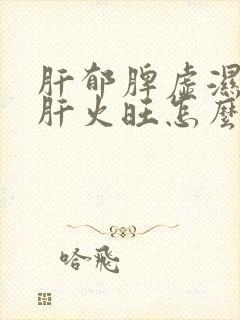 肝郁脾虚濕
肝火旺怎麽
哈飛